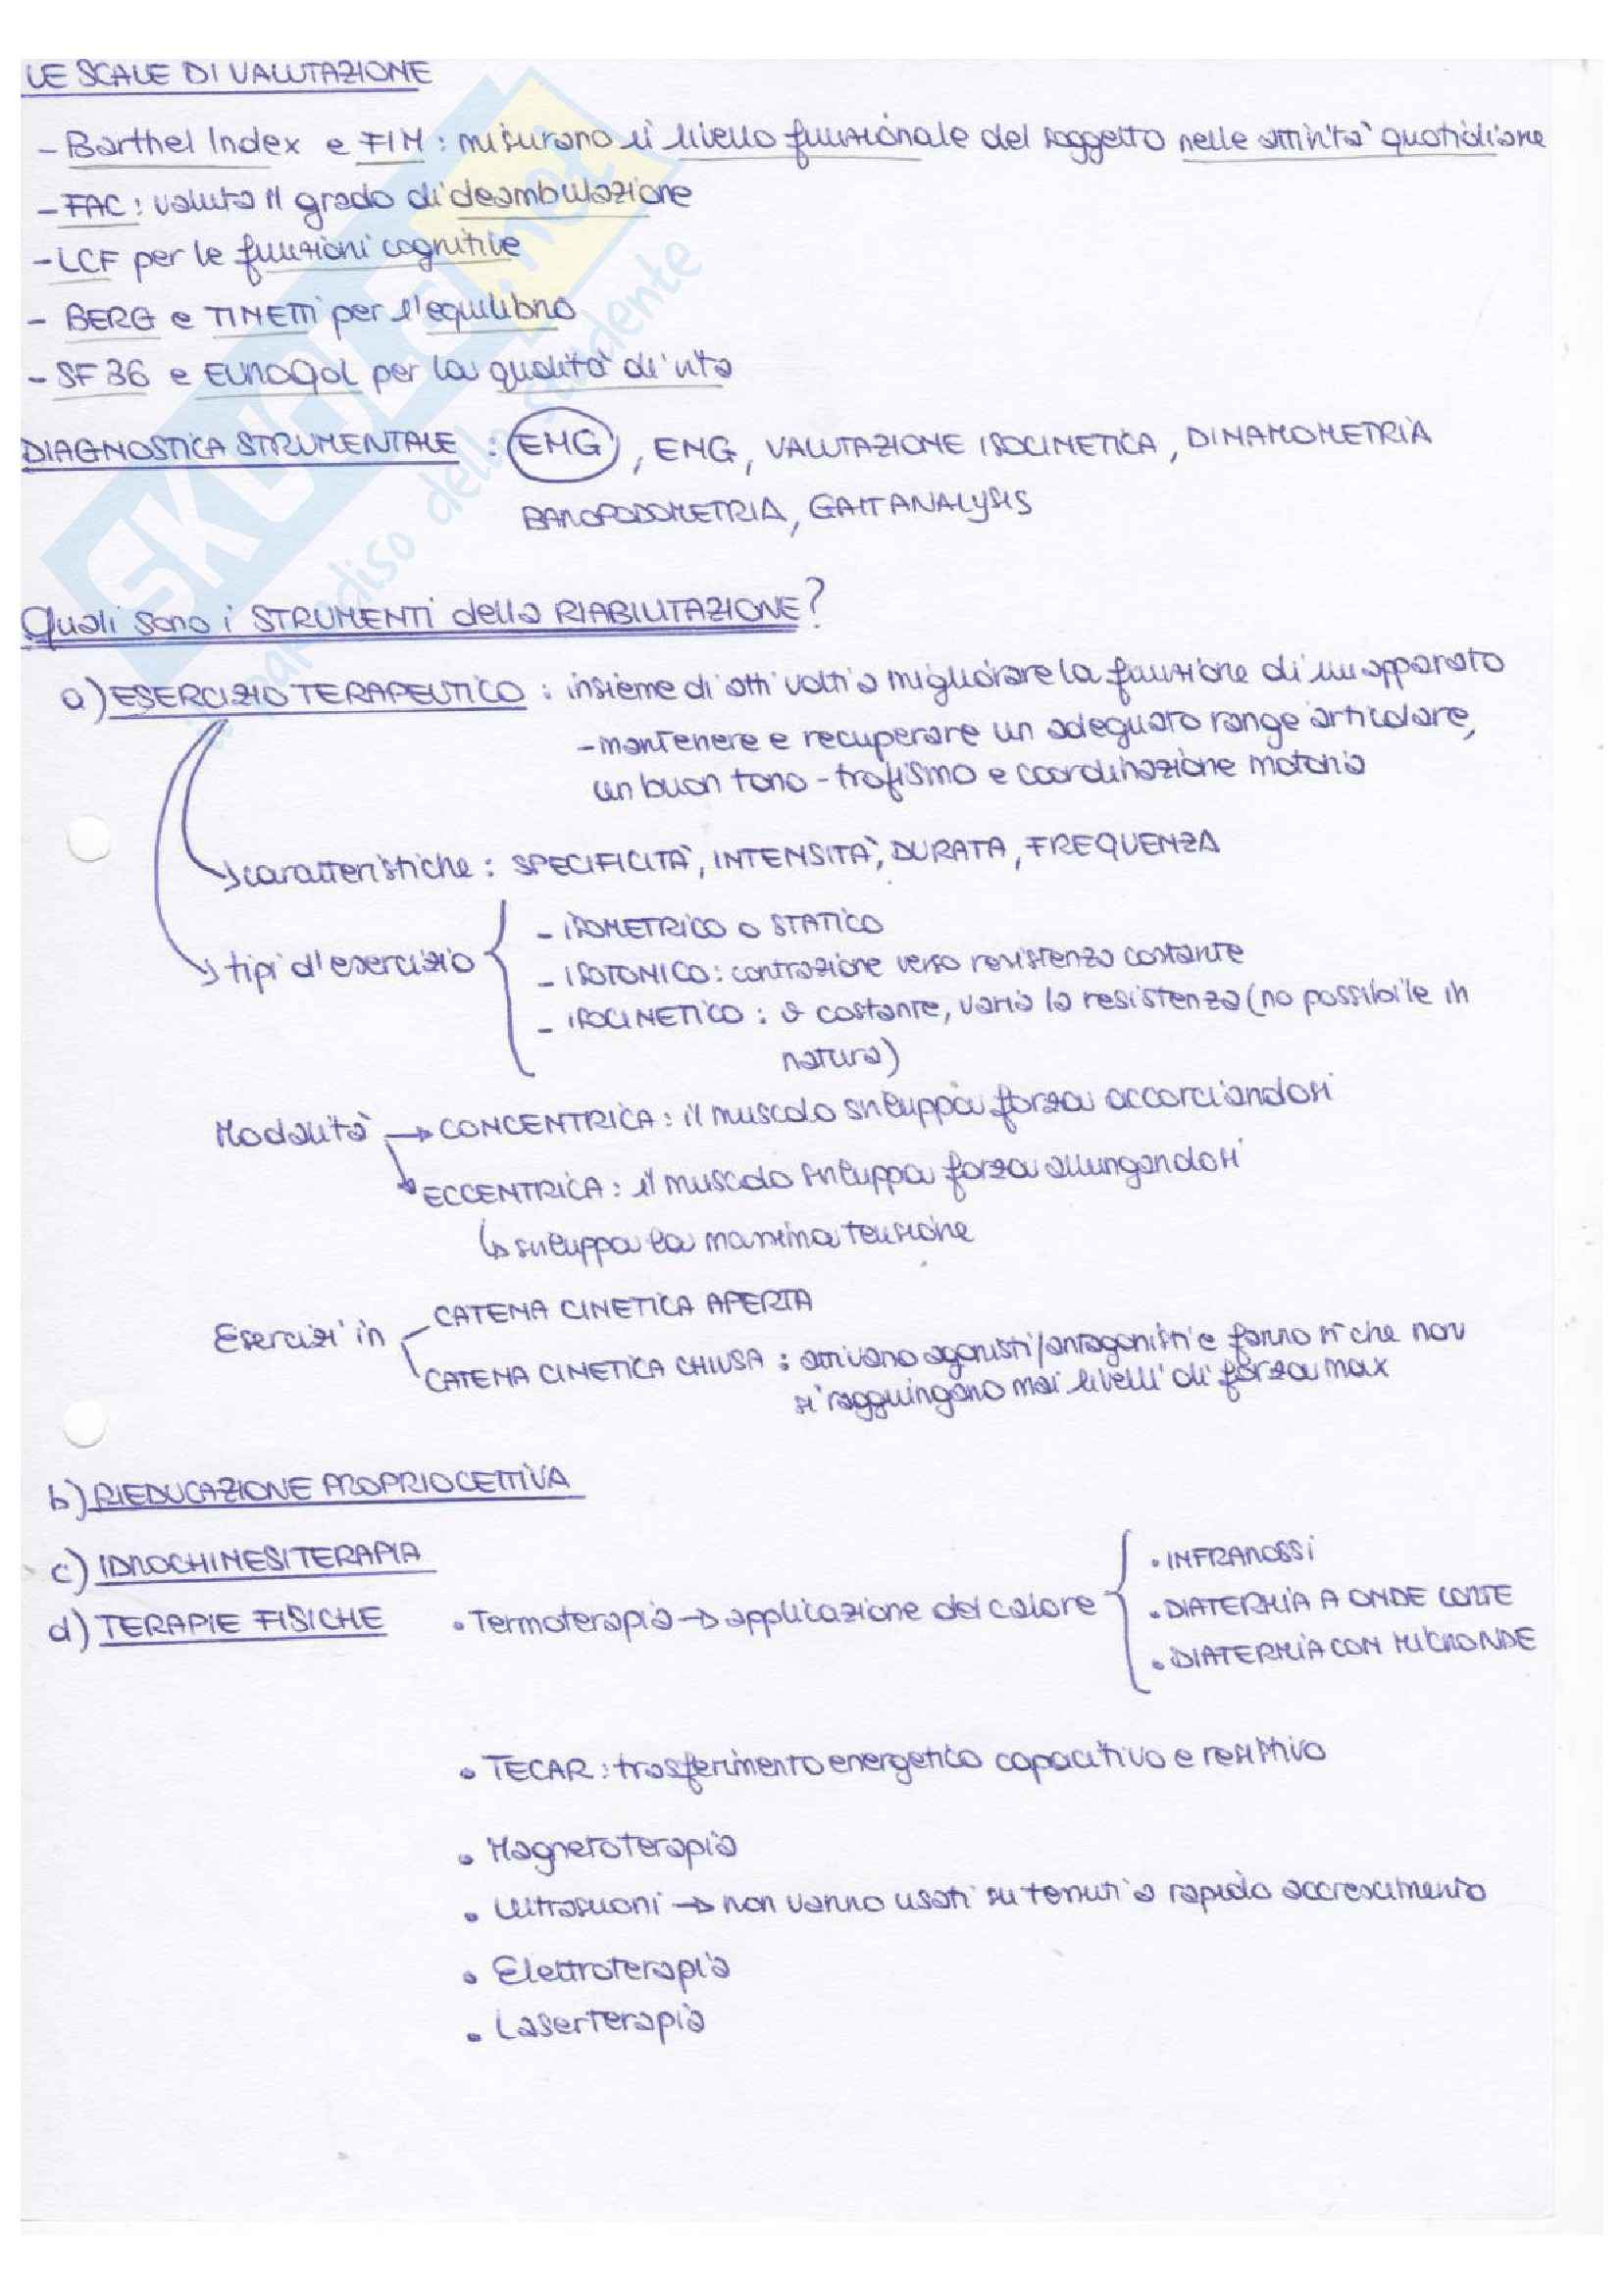 LE SCALE DI VALUTAZIONE
- Barthel Index e FIM : misurano il livello funzionale del soggetto nelle attività quotidiane
- FAC : valuta il grado di deambulazione
- LCF per le funzioni cognitive
- BERG e TINETTI per l'equilibrio
- SF 36 e EUROQOL per la qualità di vita
DIAGNOSTICA STRUMENTALE : EMG, ENG, VALUTAZIONE ISOCINETICA, DINAMOMETRIA
BAROPODOMETRIA, GAIT ANALYSIS
Quali sono i STRUMENTI della RIABILITAZIONE?
a) ESERCIZIO TERAPEUTICO : insieme di atti volti a migliorare la funzione di un apparato
- mantenere e recuperare un adeguato range articolare,
un buon tono - trofismo e coordinazione motoria
→ caratteristiche : SPECIFICITÀ, INTENSITÀ, DURATA, FREQUENZA
→ tipi d'esercizio
- ISOMETRICO O STATICO
- ISOTONICO : contrazione verso resistenza costante
- ISOCINETICO : v costante, varia la resistenza (no possibile in
natura)
Modalità → CONCENTRICA : il muscolo sviluppa forza accorciandosi
→ ECCENTRICA : il muscolo sviluppa forza allungandosi
↳ sviluppa la massima tensione
Esercizi in
CATENA CINETICA APERTA
CATENA CINETICA CHIUSA : attivano agonisti/antagonisti e fanno sì che non
si raggiungano mai livelli di forza max
b) RIEDUCAZIONE PROPRIOCETTIVA
c) IDROCHINESITERAPIA
d) TERAPIE FISICHE
• Termoterapia → applicazione del calore
• INFRAROSSI
• DIATERMIA A ONDE CORTE
• DIATERMIA CON MICROONDE
• TECAR : trasferimento energetico capacitivo e resistivo
• Magnetoterapia
• Ultrasuoni → non vanno usati su tessuti a rapido accrescimento
• Elettroterapia
• Laserterapia
SKUOLA.net
il paradiso dello studente